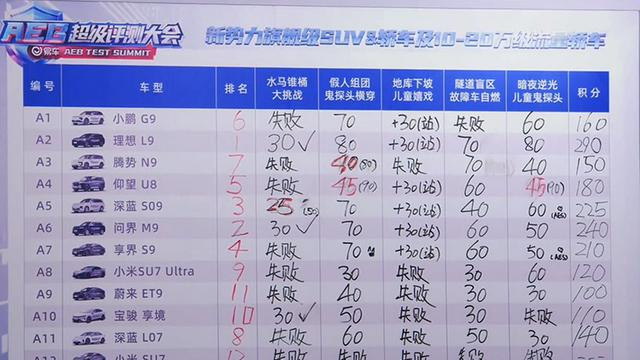 AEB超级评测大会
易车 AEB TEST SUMMIT
新势力旗舰级SUV&轿车及10-20万级流量轿车
编号 车型 排名 水马锥桶大挑战 假人组团鬼探头横穿 地库下坡儿童嬉戏 隧道盲区故障车自燃 暗夜逆光儿童鬼探头 积分
A1 小鹏 G9 6 失败 70 +30(站) 失败 60 160
A2 理想 L9 1 30✓ 80 +30(站) 70 80 290
A3 腾势 N9 7 失败 40(80) 失败 70 40 150
A4 仰望 U8 5 失败 45(90) +30(站) 60 45(90) 180
A5 深蓝 S09 3 25(50) 70 +30(站) 40 60(AES) 225
A6 问界 M9 2 30✓ 70 +30(站) 60 50 240
A7 享界 S9 4 失败 70 +30(站) 60 50(AES) 210
A8 小米SU7 Ultra 9 失败 30 失败 30 60 120
A9 蔚来 ET9 11 失败 40 失败 30 30 100
A10 宝骏 享境 10 30✓ 50 失败 30 失败 110
A11 深蓝 L07 8 失败 60 失败 50 30 140
小米 SU7